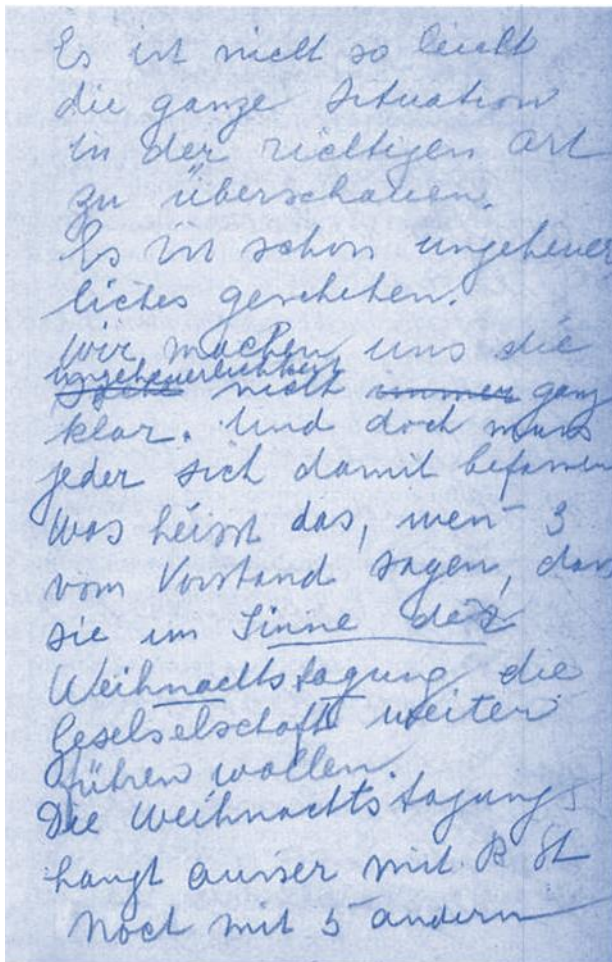 Es ist nicht so leicht
die ganze Situation
in der richtigen Art
zu überschauen.
Es ist schon ungeheuer
liches geschehen.
Wir machen uns die
ungeheuerlichkeit
nicht immer ganz
klar. Und doch muss
jeder sich damit befassen
Was heisst das, wen 3
vom Vorstand sagen, das
sie im Sinne der
Weihnachtstagung die
Geselselschaft weiter
führen wollen.
Die Weihnachtstagung
hangt ausser mit R St
noch mit 5 andern